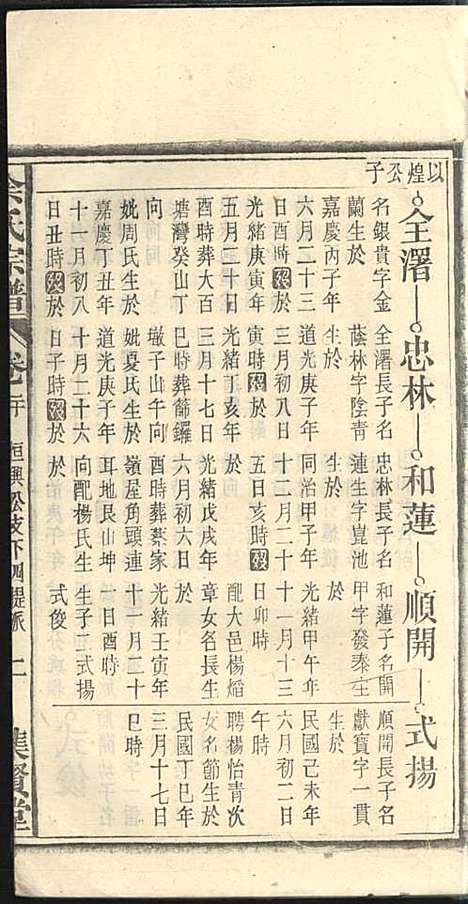 以煌公子
全濐
名銀貴字金
蘭生於
嘉慶丙子年
六月二十三
日酉時歿於
光緒庚寅年
五月十日
酉時葬大百
塘灣癸山丁
向
妣周氏生於
嘉慶丁丑年
十一月初八
日丑時歿於
忠林
全濐長子名
蔭林字陰青
生於
道光庚子年
三月初八日
寅時歿於
光緒丁亥年
三月十七日
巳時葬篩鑼
墩子山午向
妣夏氏生於
道光庚子年
十月二十六
日子時歿於
和蓮
忠林長子名
蓮生字崑池
生於
同治甲子年
十二月二十
五日亥時歿
於
光緒戊戌年
六月初六日
酉時葬蔡家
嶺屋角頭連
耳地艮山坤
向配楊氏生
於
順開
和蓮子名開
甲字發泰生
於
光緒甲午年
十一月十三
日卯時
配大邑楊熖
章女名長生
於
光緒壬寅年
十一月二十
日酉時
生子二式揚
式俊
式揚
順開長子名
獻寶字一貫
生於
民國己未年
六月初二日
午時
聘楊怡青次
女名節生於
民國丁巳年
三月十七日
巳時
余氏宗譜
卷二十
恒興公支下四提派
二
集賢堂